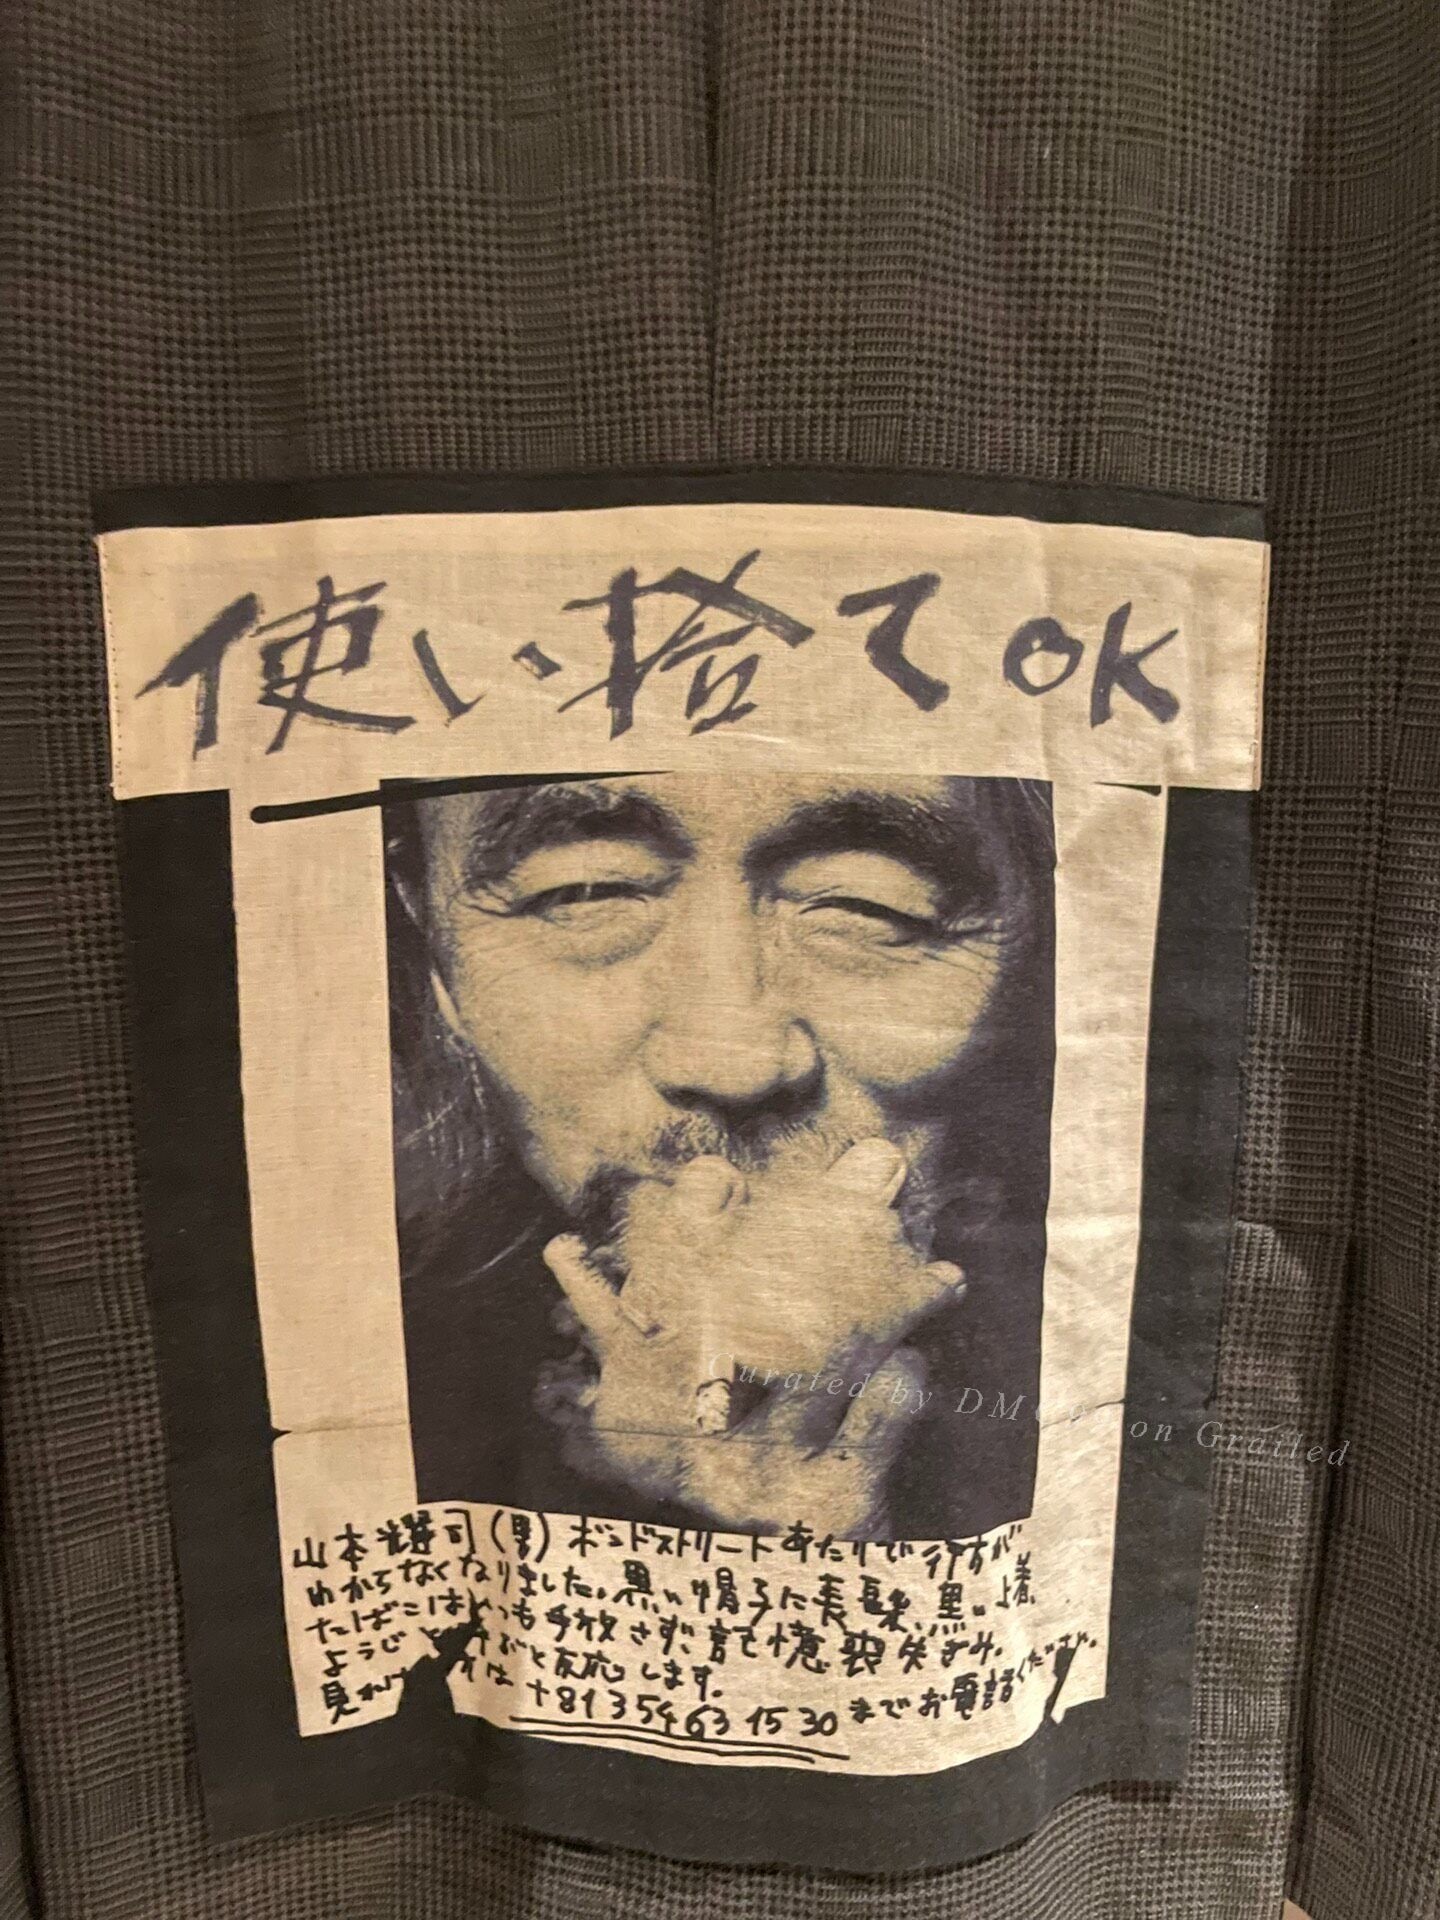 使い捨てOK
山本耀司(男)ボンドストリートあたりで行方が
わからなくなりました。黒い帽子に長髪、黒い上着、
たばこはいつも手放さず、記憶喪失ぎみ。
ようじと と反応します。
見か は +81 3 54 63 15 30 までお電話ください。
Curated by on Grailed